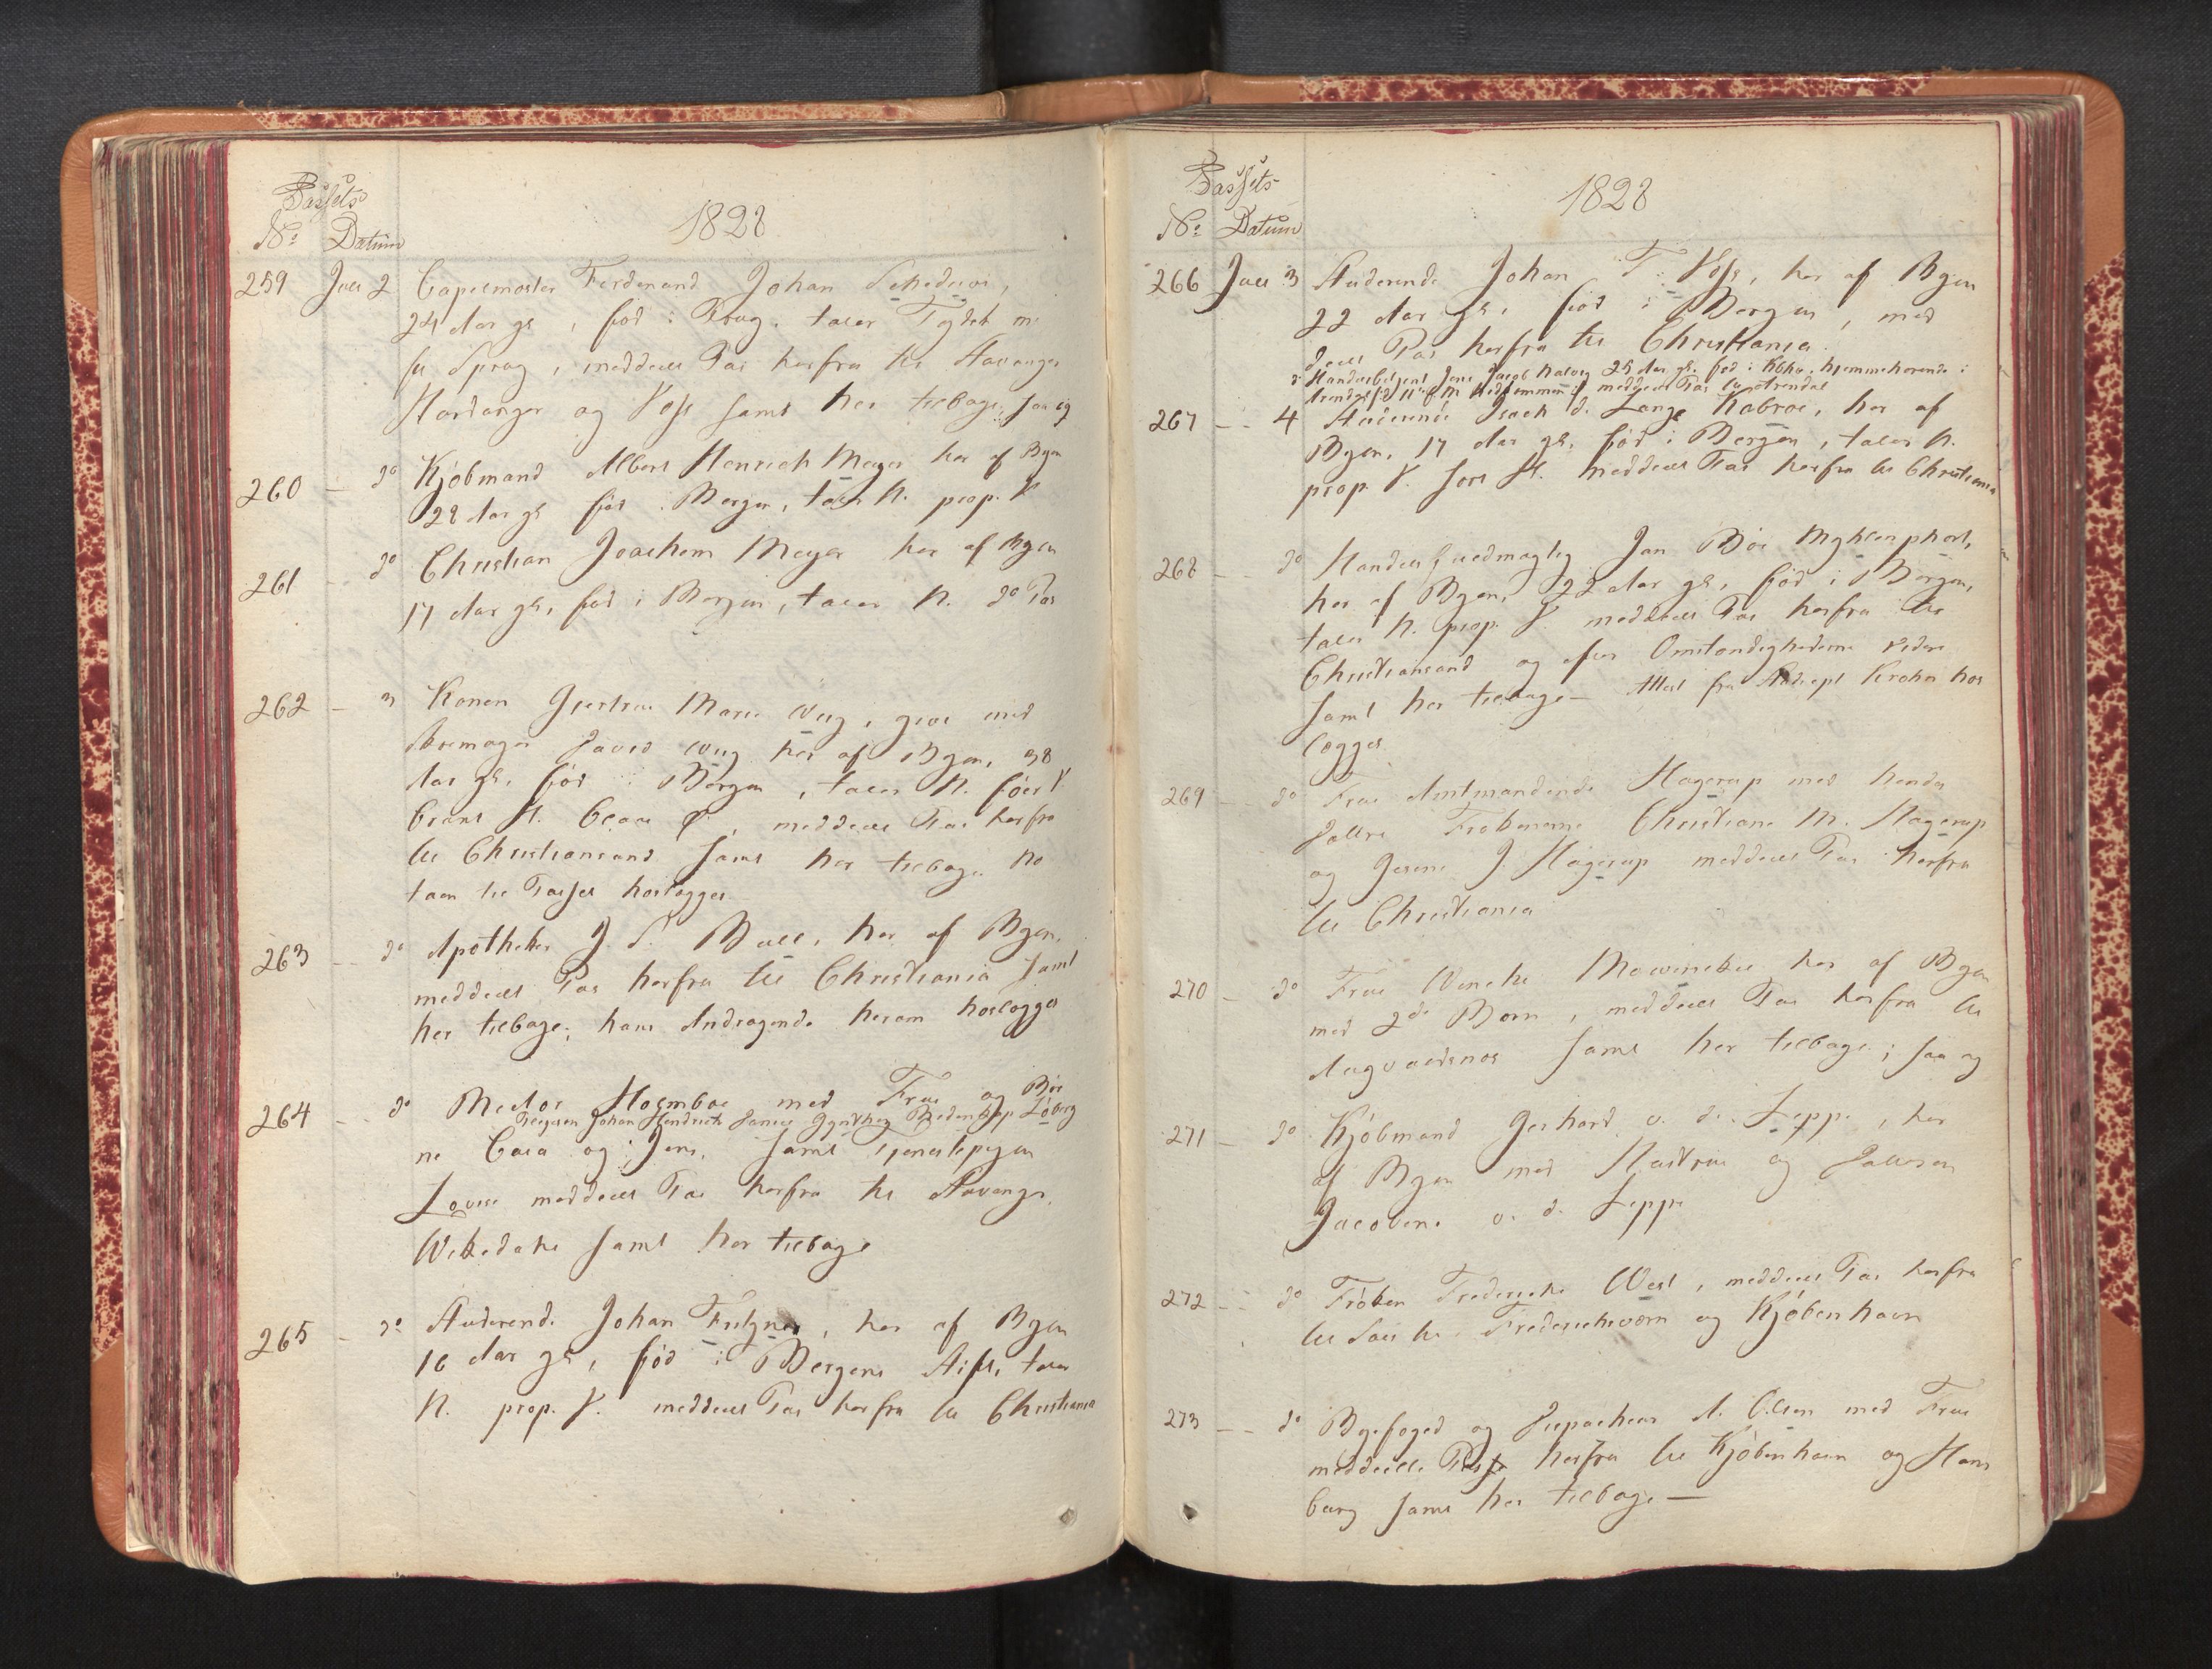 Passets
No: Datum
1828
259 Juli 2 Capelmester Ferdinand Johan Schediwi,
24 Aar gl, fød i Prag, taler Tydsk
Sprog, meddeelt Pas herfra til Stavanger
Hardanger og Voss samt her tilbage, saa og
260 - do Kjøbmand Albert Henrich Meyer her af Byen
22 Aar gl fød i Bergen, taler N. prop. V
261 - do Christian Joachem Meyer her af Byen
17 Aar gl, fød i Bergen, taler N. do Pas
262 - 3 Konen Giertrue Marie Wiig, give med
Skoemager David Wiig her af Byen, 38
Aar gl, fød i Bergen, taler N. før V
bruns H. blaae Ø, meddeelt Pas herfra
til Christiansand samt her tilbage. No
taen til Passet hoslegges.
263 - do Apotheker J. S. Bull, her af Byen,
meddeelt Pas herfra til Christiania samt
her tilbage; hans Andragende herom hoslegges
264 do Rector Holmboe med Frue og Bør
Johan Hendrich Daniel
ne Cara og Jens, samt Tjenestepigen
Lovise meddeelt Pas herfra til Stavanger,
samt her tilbage
265 - do Studerende Johan Fritzner, her af Byen
16 Aar gl, fød i Bergens Stift, taler
N. prop. V. meddeelt Pas herfra til Christiania
Passets
No: Datum
1828
266 Juli 3 Studerende Johan F. Voss, her af Byen
22 Aar gl, fød i Bergen, med
deelt Pas herfra til Christiania.
do Handelsbetjent Jens Jacob 25 Aar gl. fød i Kbhv. hjemmehørende i
meddeelt Pas til Arendal
267 -- 4 Studerende Isach d. Lange Kobroe, her af
Byen, 17 Aar gl, fød i Bergen, taler N.
prop. V. sort H. meddeelt Pas herfra til Christiania
268 -- do Handelsfuldmægtig Jan Bøe
her af Byen, 22 Aar gl, fød i Bergen,
taler N. prop. V. meddeelt Pas herfra til
Christiansand og efter Omstændighederne videre
samt her tilbage - Attest fra Krohn hos
legges
269 -- do Frue Amtmandinde Hagerup med hendes
Døttre Frøknerne Christiane M. Hagerup
og J. Hagerup meddeelt Pas herfra
til Christiania
270 - do Frue Wenche Mowinckel her af Byen
med 2de Børn, meddeelt Pas herfra til
Augvaldsnes samt her tilbage; saa og
271 - do Kjøbmand Gerhard v. d. Lippe, her
af Byen med Hustrue og Datteren
Jacobine v. d. Lippe
272 -- do Frøken Frederiche West, meddeelt Pas herfra
til Søes til Frederichsværn og Kjøbenhavn
273 -- do Byefoged og Dispacheur A. Olsen med Frue
meddeelte Passe herfra til Kjøbenhavn og Ham
burg samt her tilbage -